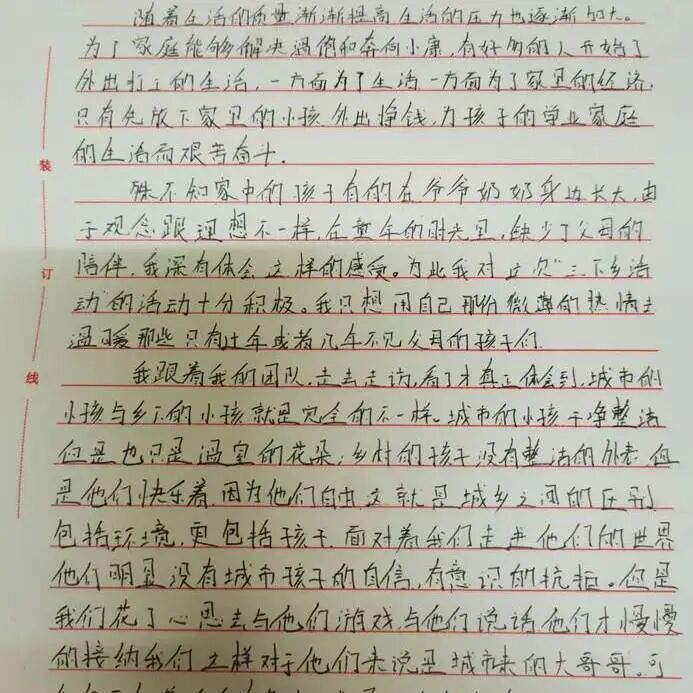 随着生活的质量渐渐提高,生活的压力也逐渐加大。
为了家庭能够解决温饱和奔向小康,有好多的人开始了
外出打工的生活,一方面为了生活一方面为了家里的经济,
只有先放下家里的小孩外出挣钱,为孩子的学业家庭
的生活而艰苦奋斗.
装
殊不知家中的孩子有的在爷爷奶奶身边长大,由
于观念跟理想不一样,在童年的时光里,缺少了父母的
订
陪伴,我深有体会这样的感受。为此我对这次"三下乡活
动"的活动十分积极。我只想用自己那份微薄的热情去
温暖那些只有过年或者几年不见父母的孩子们.
线
我跟着我的团队,走去走访,看了才真正体会到,城市的
小孩与乡下的小孩就是完全的不一样。城市的小孩干净整洁
但是也只是温室的花朵;乡村的孩子没有整洁的外表,但
是他们快乐着,因为他们自由,这就是城乡之间的区别
包括环境,更包括孩子.面对着我们走进他们的世界
他们明显没有城市孩子的自信,有意识的抗拒。但是
我们花了心思去与他们游戏,与他们说话他们才慢慢
的接纳我们这样对于他们来说是城市来的大哥哥。可